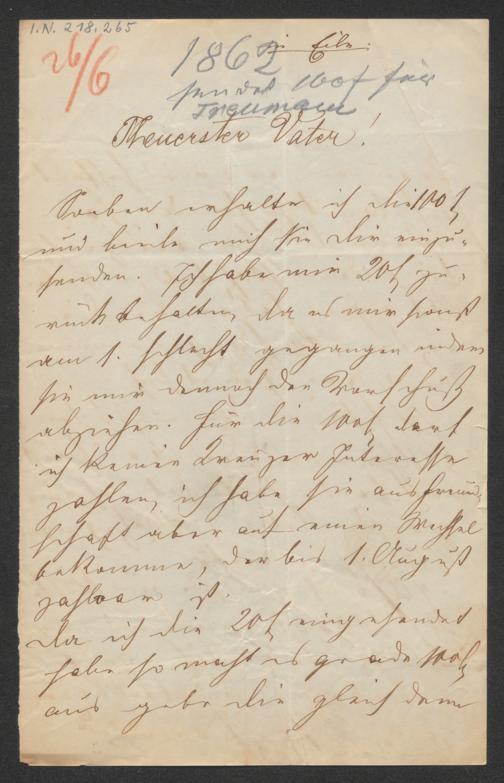 I.N. 218.265
26/6
1862
in Eile.
sendet 100f für
Theuerster Vater!
Soeben erhalte ich die 100f
und beeile mich sie dir einzu-
senden. Ich habe mir 20f zu-
rück behalten, da es mir sonst
am 1. schlecht gegangen indem
sie mir dennoch den Vorschuß
abziehen. Für die 100f darf
ich keinen Kreuzer Interesse
zahlen, ich habe sie aus Freund-
schaft aber auf einen Wechsel
bekomme, der bis 1. August
zahlbar ist.
Da ich die 20f eingesendet
habe so macht es grade 100f
aus gebe die gleich dem